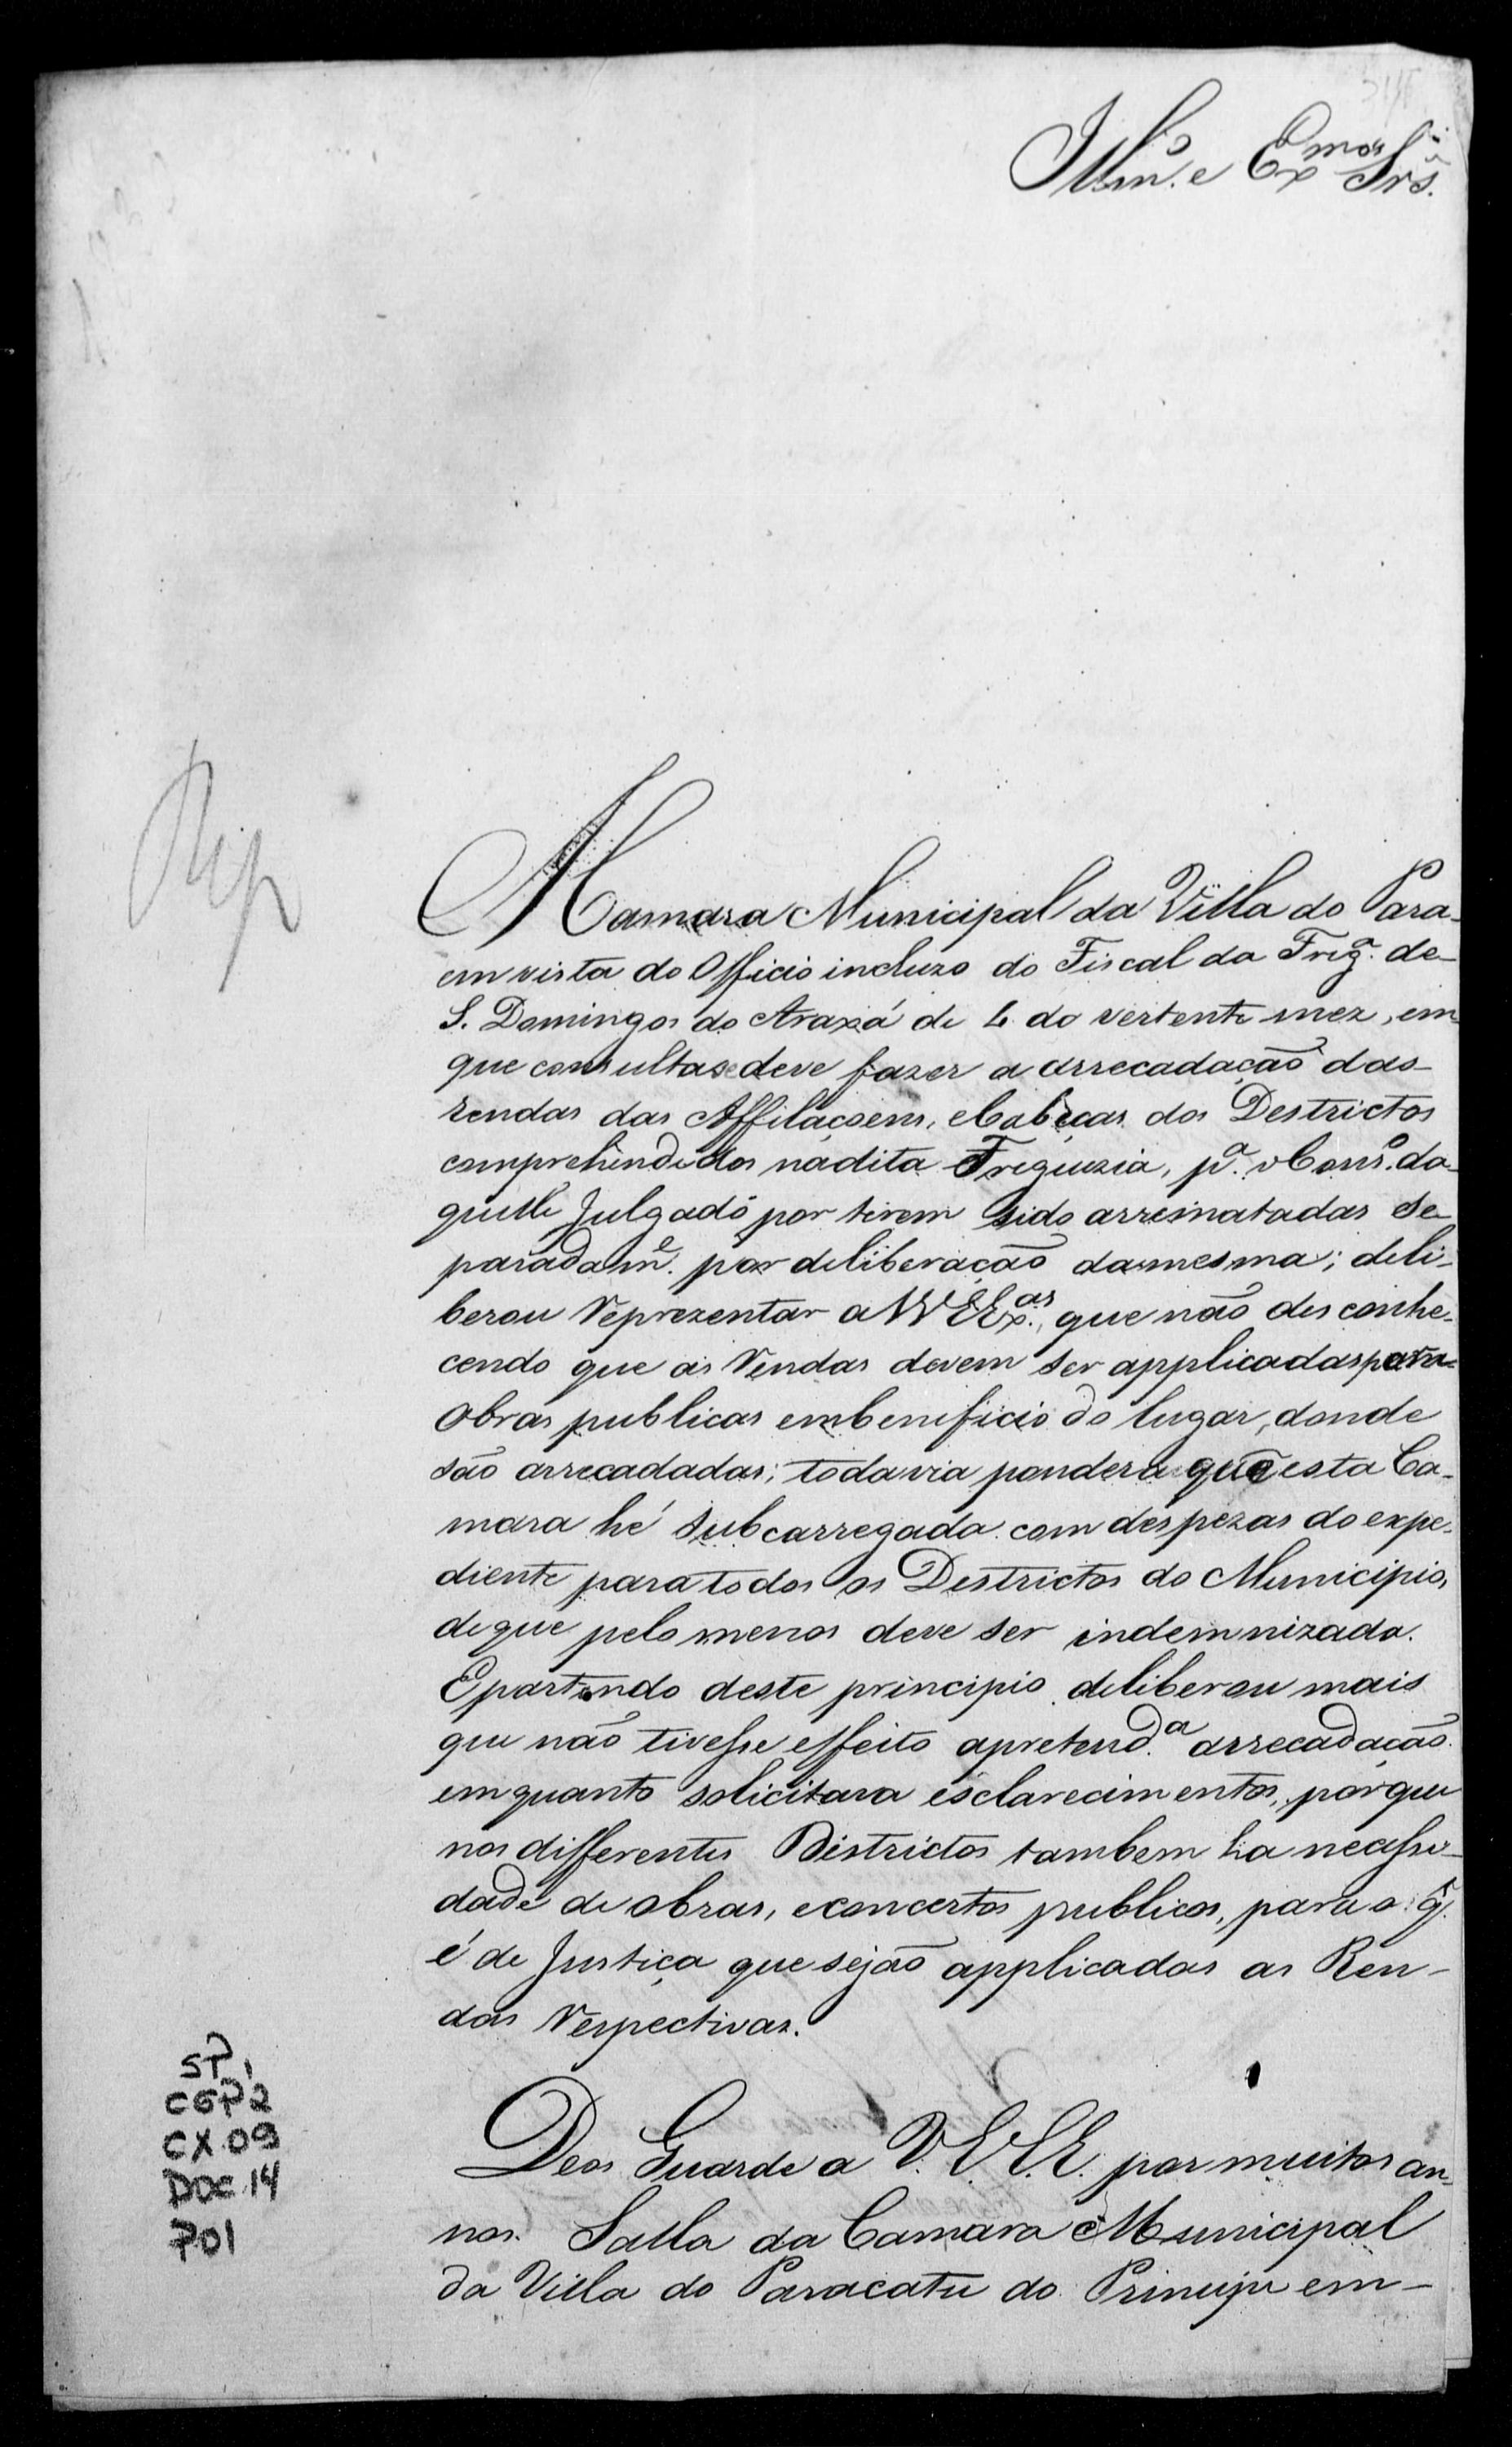 Illm.ᵒˢ e Exmos Srs.
Rep
A Camara Municipal da Villa do Para-
em vista do Officio incluzo do Fiscal da Freg.ª de
S. Domingos do Araxá de 4 do vertente mez, em
que consulta se deve fazer a arrecadação das
rendas das Affilaçoens, e Cabeças dos Destrictos
comprehendidos na dita Freguezia, p.ª o Cons.º da
quelle Julgado por terem sido arrematadas se
paradam.e por deliberação da mesma; deli-
berou Reprezentar a VV EEx.as, que não desconhe-
cendo que as Rendas devem ser applicadas para
obras publicas em beneficio do lugar, donde
são arrecadadas; todavia pondera que esta Ca-
mara hé subcarregada com despezas do expe-
diente para todos os Destrictos do Municipio,
de que pelo menos deve ser indemnizada.
E partindo deste principio deliberou mais
que não tivesse effeito a pretend.ª arrecadação
em quanto solicitava esclarecimentos, porque
nos differentes Districtos tambem ha necessi-
dade de obras, e concertos publicos, para o q̃
é de Justiça que sejão applicadas as Ren-
das Respectivas.
Deos Guarde a V. E. V. E. por muitos an-
nos. Salla da Camara Municipal
da Villa do Paracatu do Principe em-
SP,
CGP2
CX.09
DOC.14
701